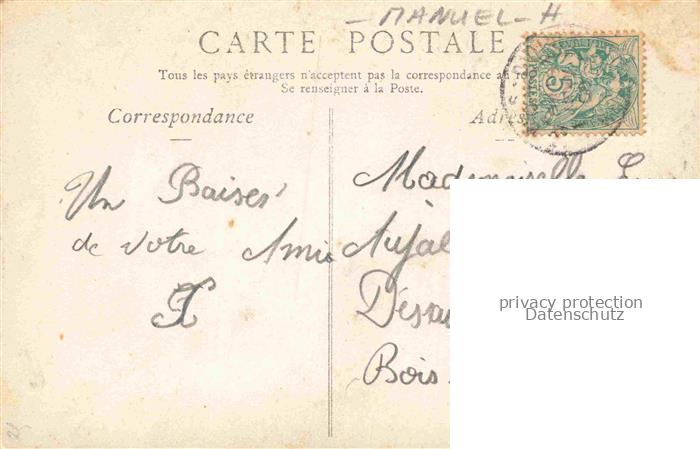 - MANUEL - H
CARTE POSTALE
Tous les pays étrangers n'acceptent pas la correspondance au
Se renseigner à la Poste.
Correspondance
Un Baiser
de votre Amie
Mademoiselle
Bois
privacy protection
Datenschutz